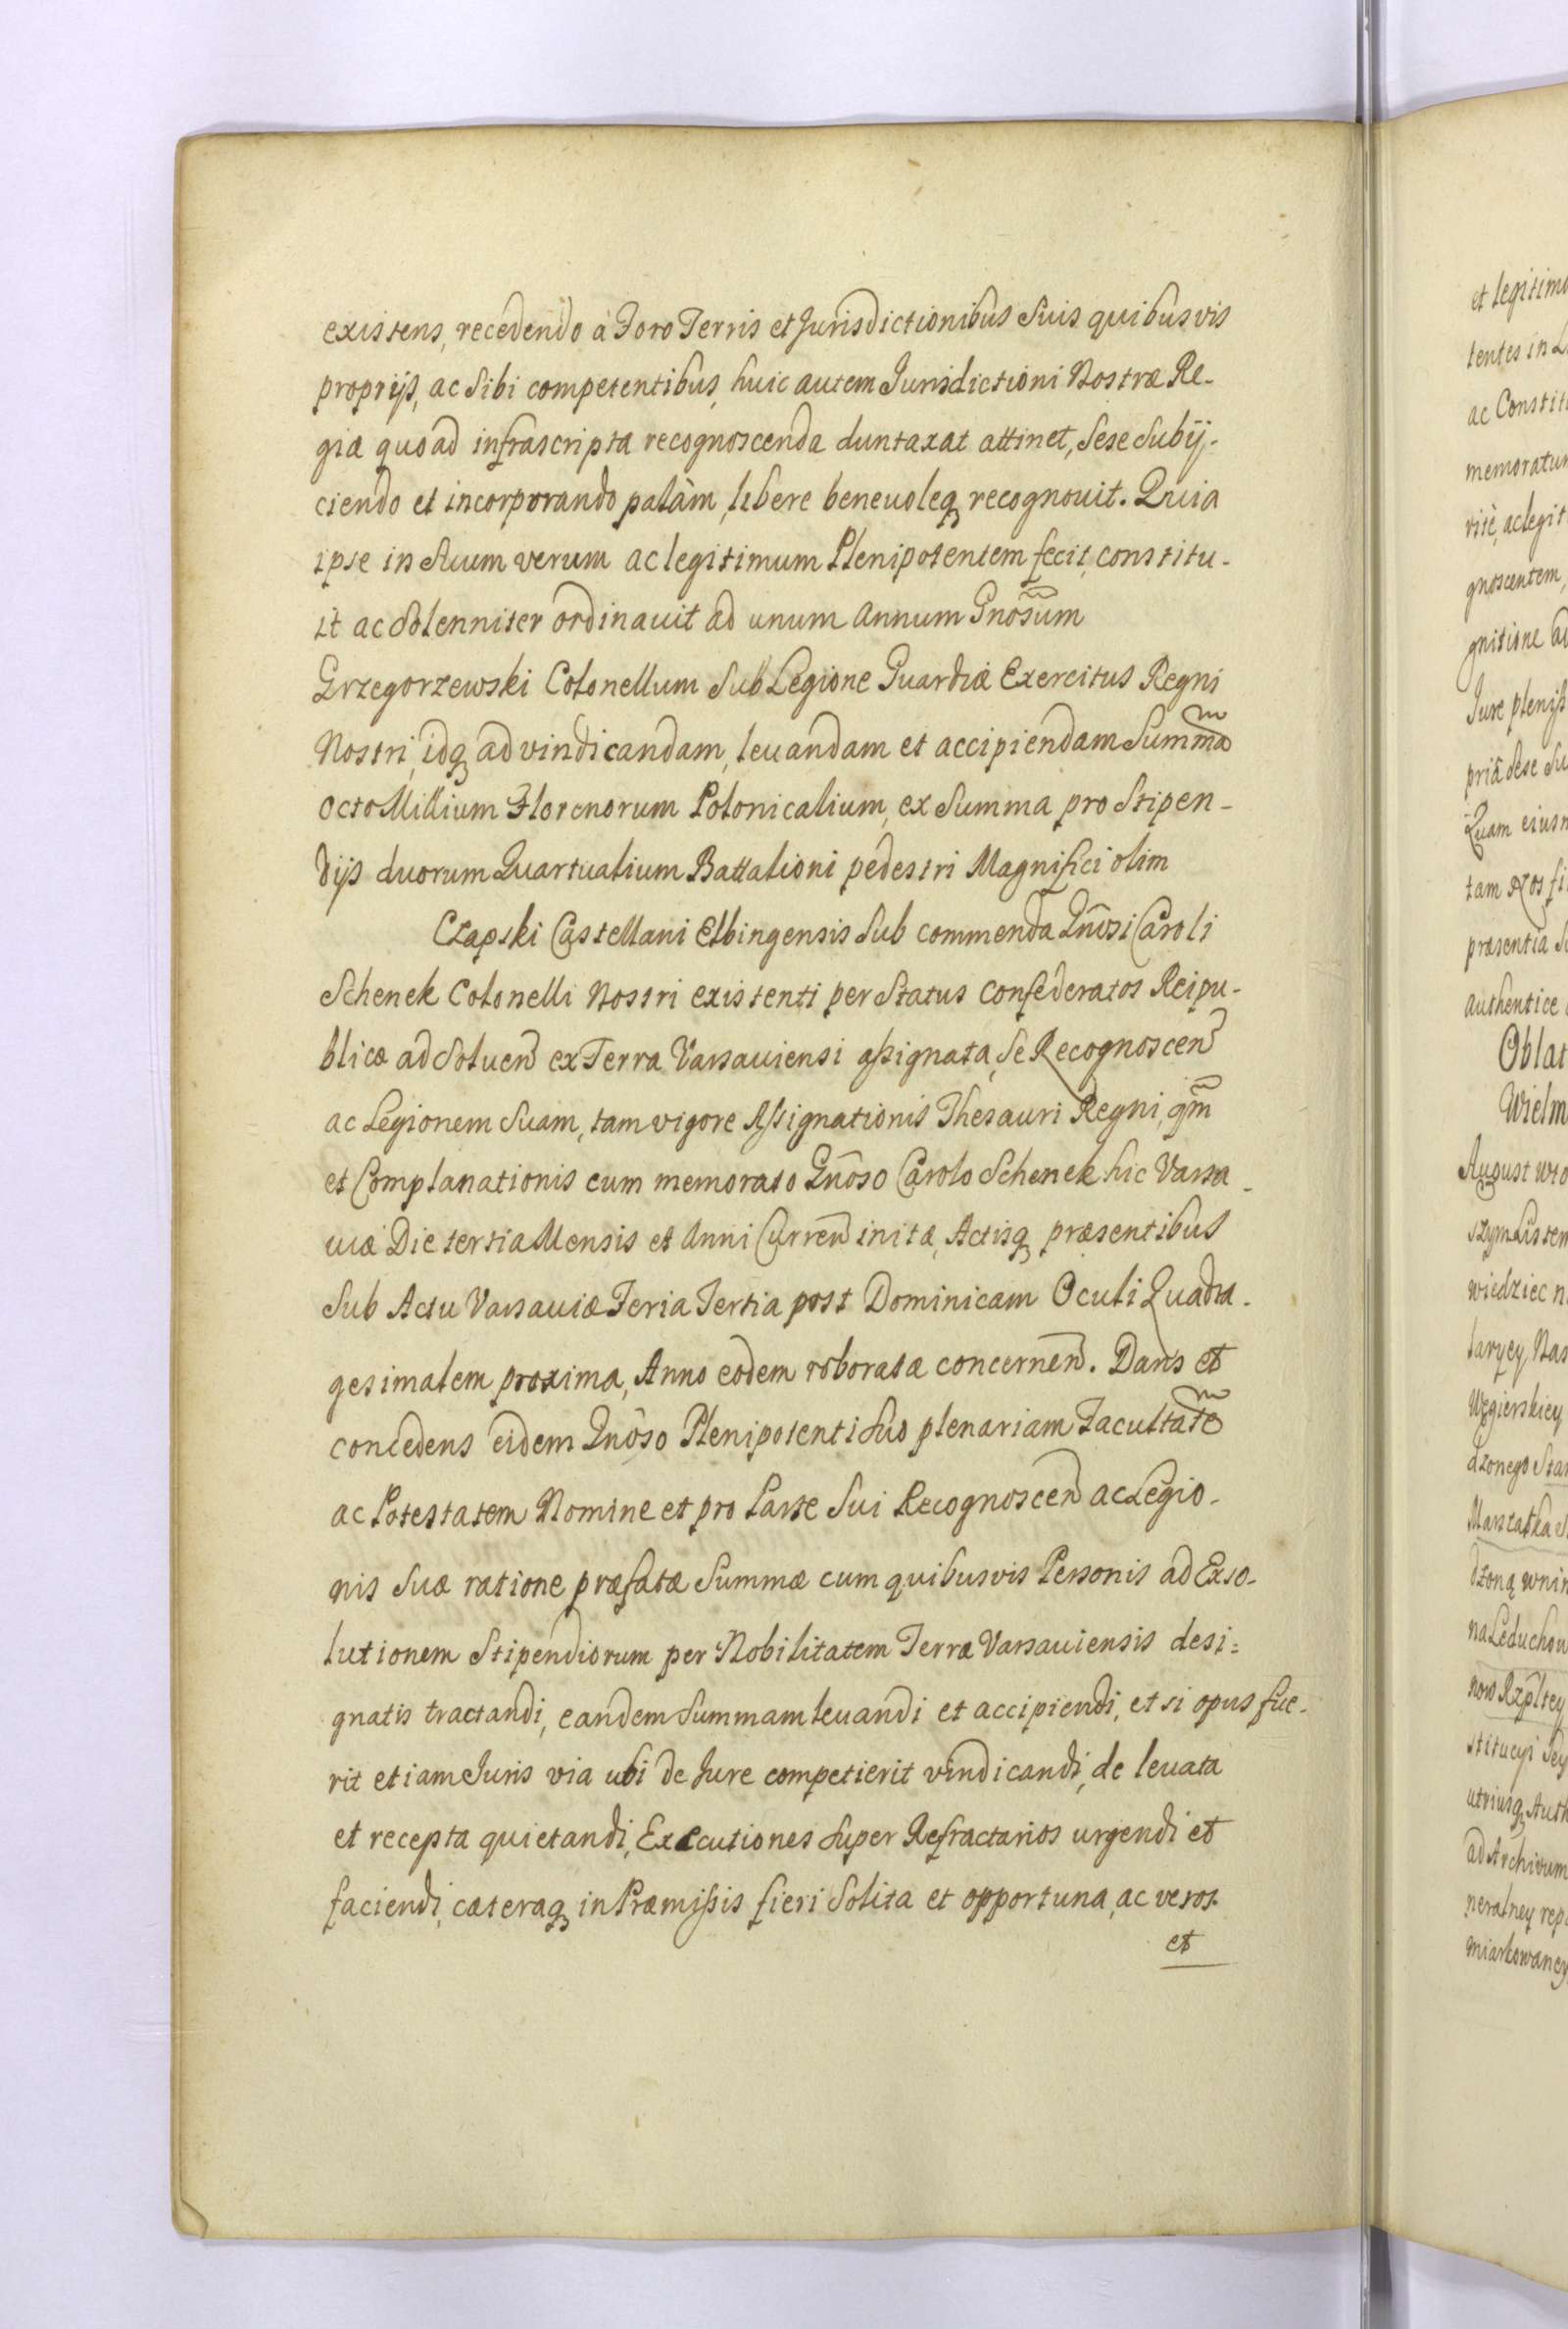 existens, recedendo à Foro Terris et Jurisdictionibus Suis quibusvis
proprijs, ac Sibi competentibus, huic autem Jurisdictioni Nostræ Re-
giæ quoad infrascripta recognoscenda duntaxat attinet, Sese Subij-
ciendo et incorporando palàm, libere beneuoleq recognouit. Quia
ipse in Suum verum ac legitimum Plenipotentem fecit, constitu-
it ac Solenniter ordinauit ad unum Annum Gnõsum
Grzegorzewski Colonellum Sub Legione Guardiæ Exercitus Regni
Nostri, idq ad vindicandam, leuandam et accipiendam Summã
Octo Millium Florenorum Polonicalium, ex Summa pro Stipen-
dijs duorum Quartualium Battalioni pedestri Magnifici olim
Czapski Castellani Elbingensis Sub commenda Gnõsi Caroli
Schenek Colonelli Nostri existenti per Status Confederatos Reipu-
blicæ ad Soluen ex Terra Varsauiensi assignata, Se Recognoscen
ac Legionem Suam, tam vigore Assignationis Thesauri Regni, qm̃
et Complanationis cum memorato Gnõso Carolo Schenek hic Varsa-
uiæ Die tertia Mensis et Anni Curren initæ, Actisq præsentibus
Sub Actu Varsauiæ Feria Tertia post Dominicam Oculi Quadra-
gesimalem proxima, Anno eodem roboratæ concernen. Dans et
concedens eidem Gnõso Plenipotenti Suo plenariam Facultatẽ
ac Potestatem Nomine et pro Parte Sui Recognoscen ac Legio-
nis Suæ ratione præfatæ Summæ cum quibusvis Personis ad Exso-
lutionem Stipendiorum per Nobilitatem Terræ Varsauiensis desi=
gnatis tractandi, eandem Summam leuandi et accipiendi, et si opus fue-
rit etiam Juris via ubi de Jure competierit vindicandi, de leuata
et recepta quietandi, Executiones Super Refractarios urgendi et
faciendi, cæteraq in Præmissis fieri Solita et opportuna, ac veros
et
et legitimo
tentes in L
ac Constit
memoratum
ritè, ac legit
gnoscentem,
gnitione ad
Jure pleniss
priâ Sese Su
Quam eius
tam
præsentia
authentice
Oblat
Wielm
August
szym Listem
wiedziec n
Węgierskiey
dzonego Sta
Marszałka
na Leduchow
now Rzpltey
stitucyi Sey
utriusq Auth
ad Archivum
neralney rep
miarkowaney